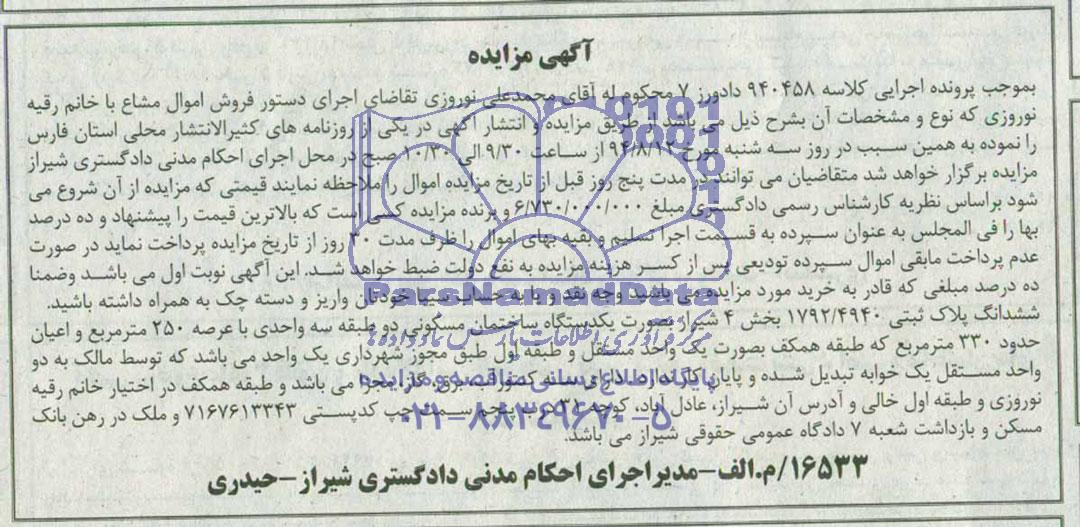 آگهی مزایده
بموجب پرونده اجرایی کلاسه ۹۴۰۴۵۸ دادورز ۷ محکوم له آقای محمدعلی نوروزی تقاضای اجرای دستور فروش اموال مشاع با خانم رقیه
نوروزی که نوع و مشخصات آن بشرح ذیل می باشد از طریق مزایده و انتشار آگهی در یکی از روزنامه های کثیرالانتشار محلی استان فارس
را نموده به همین سبب در روز سه شنبه مورخ ۹۴/۸/۱۲ از ساعت ۹/۳۰ الی ۱۰/۳۰ صبح در محل اجرای احکام مدنی دادگستری شیراز
مزایده برگزار خواهد شد متقاضیان می توانند در مدت پنج روز قبل از تاریخ مزایده اموال را ملاحظه نمایند قیمتی که مزایده از آن شروع می
شود براساس نظریه کارشناس رسمی دادگستری مبلغ ۶/۷۳۰/۰۰۰/۰۰۰ و برنده مزایده کسی است که بالاترین قیمت را پیشنهاد و ده درصد
بها را فی المجلس به عنوان سپرده به قسمت اجرا تسلیم و بقیه بهای اموال را ظرف مدت ۳۰ روز از تاریخ مزایده پرداخت نماید در صورت
عدم پرداخت مابقی اموال سپرده تودیعی پس از کسر هزینه مزایده به نفع دولت ضبط خواهد شد. این آگهی نوبت اول می باشد وضمنا
ده درصد مبلغی که قادر به خرید مورد مزایده می باشید وجه نقد و یا به حساب سیبا خودتان واریز و دسته چک به همراه داشته باشید.
ششدانگ پلاک ثبتی ۱۷۹۲/۴۹۴۰ بخش ۴ شیراز بصورت یکدستگاه ساختمان مسکونی دو طبقه سه واحدی با عرصه ۲۵۰ مترمربع و اعیان
حدود ۳۳۰ مترمربع که طبقه همکف بصورت یک واحد مستقل و طبقه اول طبق مجوز شهرداری یک واحد می باشد که توسط مالک به دو
واحد مستقل یک خوابه تبدیل شده و پایان کار ندارد. دارای سه کنتور آب، برق، گاز، مجزا می باشد و طبقه همکف در اختیار خانم رقیه
نوروزی و طبقه اول خالی و آدرس آن شیراز، عادل آباد، کوچه ۳۸ درب پنجم سمت چپ کدپستی ۷۱۶۷۶۱۳۳۴۳ و ملک در رهن بانک
مسکن و بازداشت شعبه ۷ دادگاه عمومی حقوقی شیراز می باشد.
۱۶۵۳۳/م.الف-مدیراجرای احکام مدنی دادگستری شیراز-حیدری
ParsNamadData
مرکز فرآوری اطلاعات پارس نماد داده ها
پایگاه اطلاع رسانی مناقصه و مزایده
۰۲۱-۸۸۳۴۹۶۷۰-۵